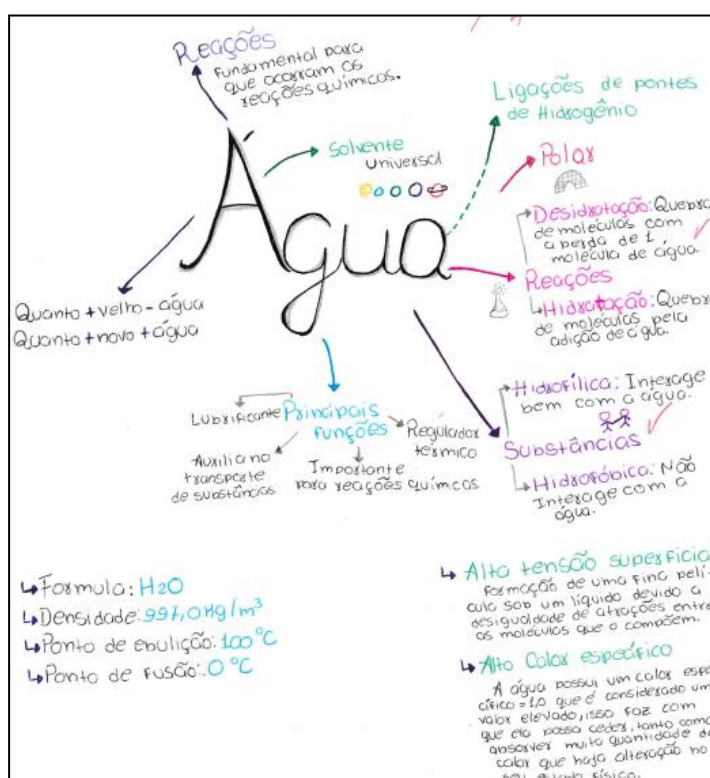 Reações
Fundamental para
que ocorram as
reações químicas.
Solvente
Universal
Ligações de pontes
de Hidrogênio
Polar
Água
Desidratação: Quebra
de moléculas com
a perda de 1
molécula de água.
Reações
Hidratação: Quebra
de moléculas pela
adição de água.
Quanto + velho - água
Quanto + novo + água
Principais
funções
Lubrificante
Auxilia no
transporte
de substâncias
Importante
para reações químicas
Regulador
térmico
Hidrofílica: Interage
bem com a água.
Substâncias
Hidrofóbica: Não
Interage com a
água.
Formula: H2O
Densidade: 997,0 Kg/m³
Ponto de ebulição: 100 °C
Ponto de fusão: 0 °C
Alta tensão superficia
Formação de uma fina pelí-
cula sob um líquido devido a
desigualdade de atrações entre
as moléculas que o compõem.
Alto Calor específico
A água possui um calor espe
cífico = 1,0 que é considerado um
valor elevado, isso faz com
que ela possa ceder, tanto como
absorver muita quantidade de
calor que haja alteração no
seu estado físico.